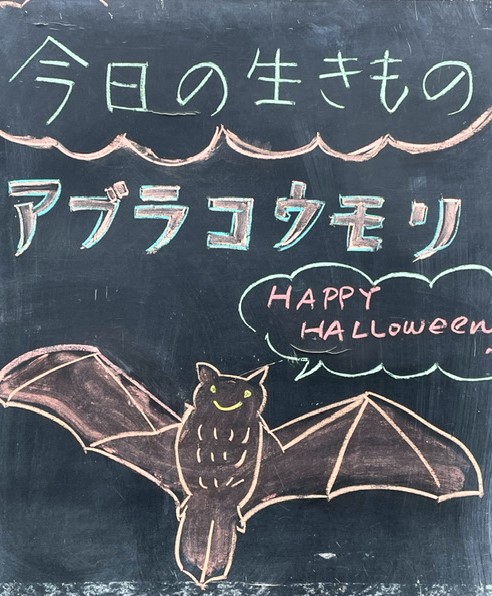 今日の生きもの
アブラコウモリ
HAPPY
HALLOWEEN!